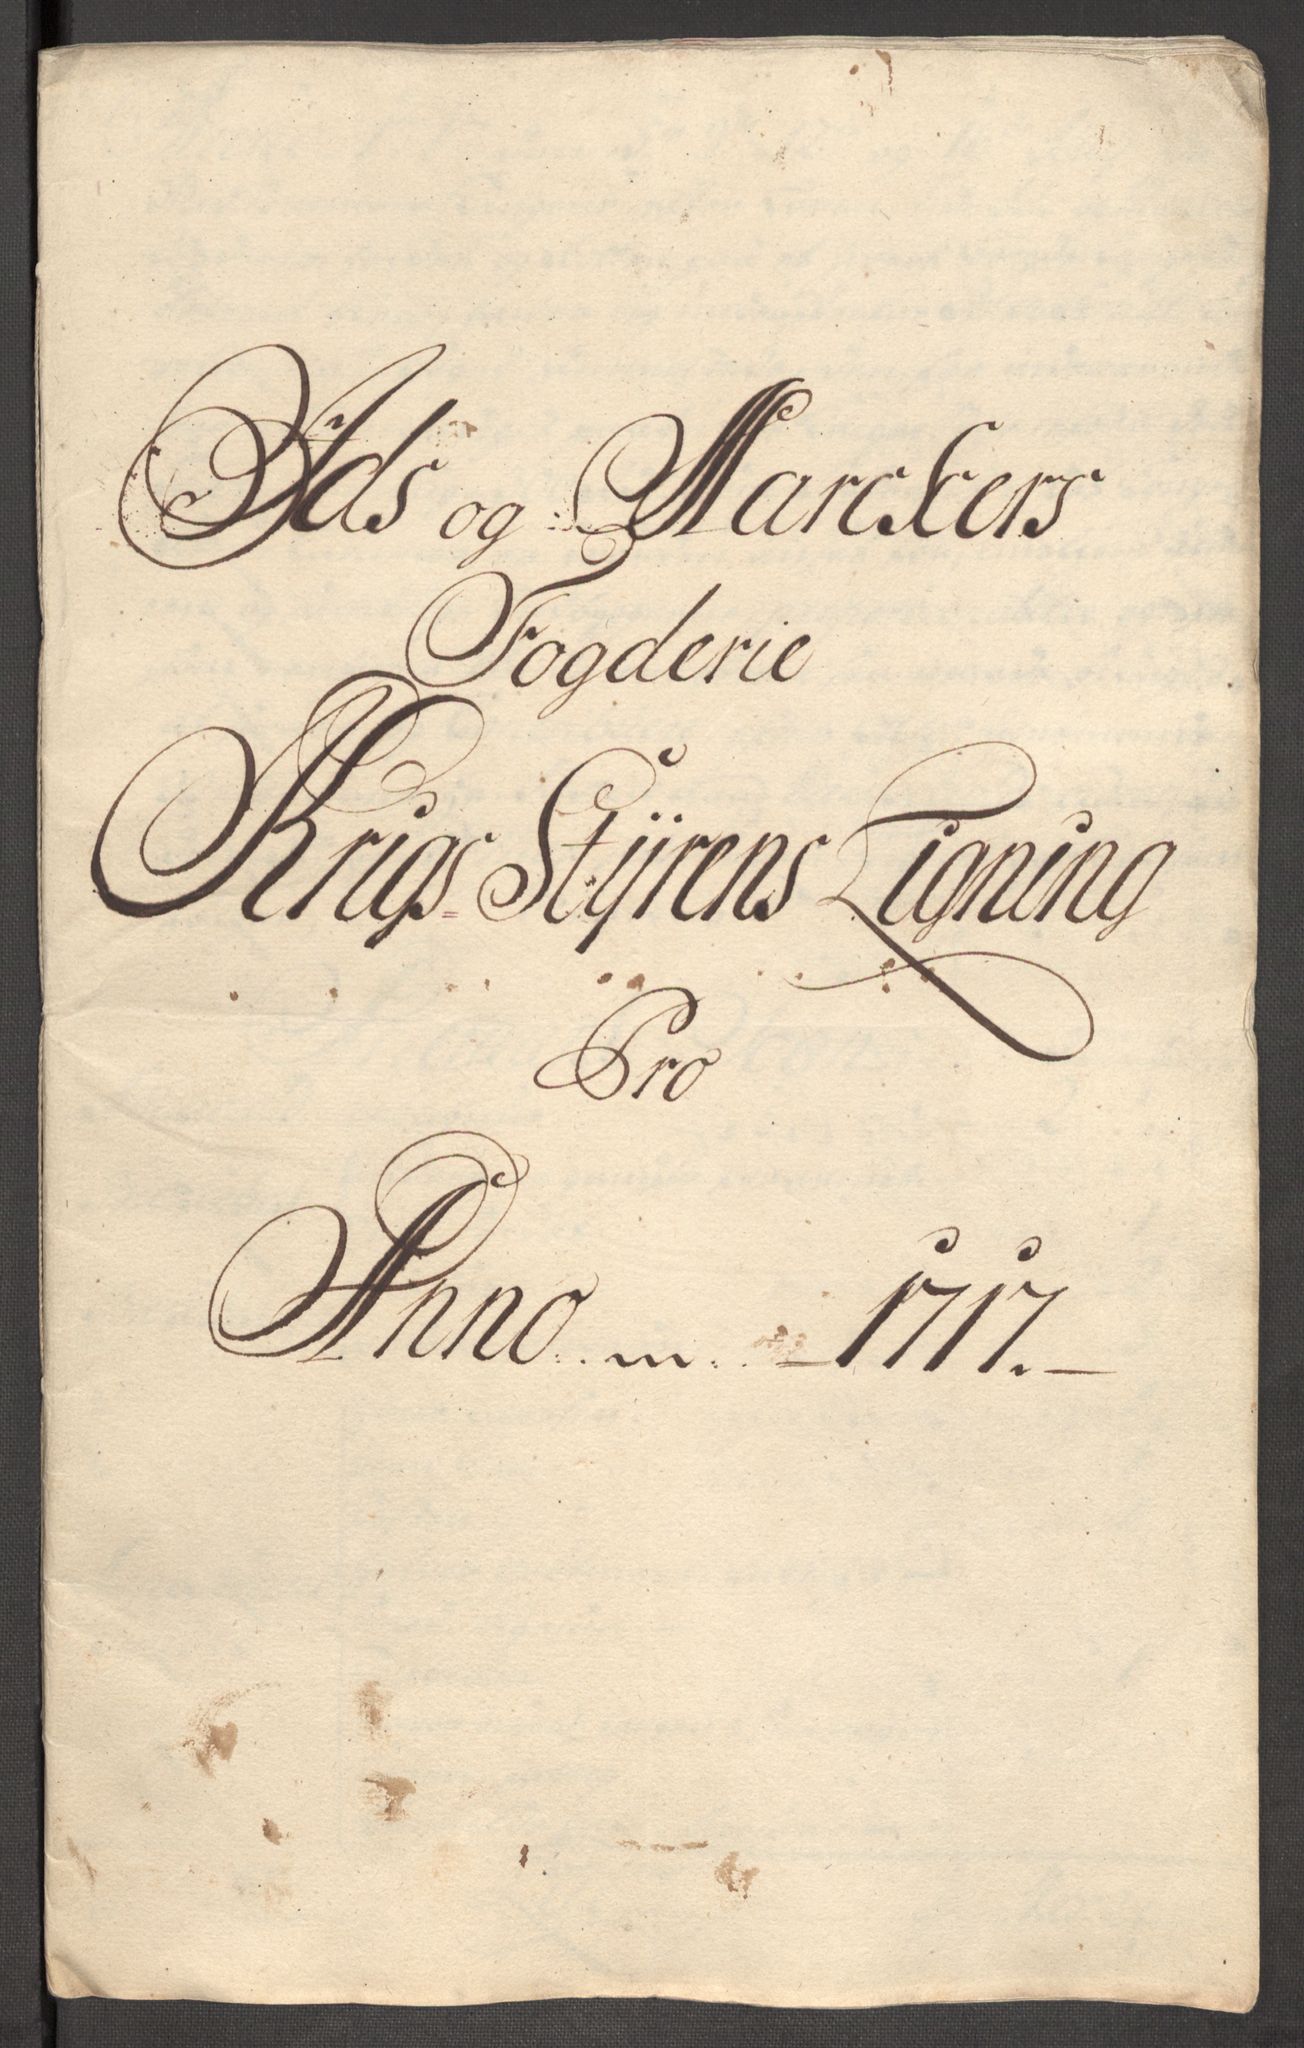 Ids og Marckers
Fogderie
Krigs-Stÿrens Ligning
Pro
Anno 1717.